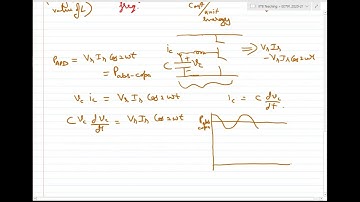 value of L) freq. Cost/
unit
energy
P_APD = V_s I_s Cos 2ωt
= P_abs-capa
i_c
C V_c
⇒ V_s I_s
- V_s I_s Cos 2ωt
V_c i_c = V_s I_s Cos 2ωt
i_c = C dV_c/dt
C V_c dV_c/dt = V_s I_s Cos 2ωt
P_abs
capa